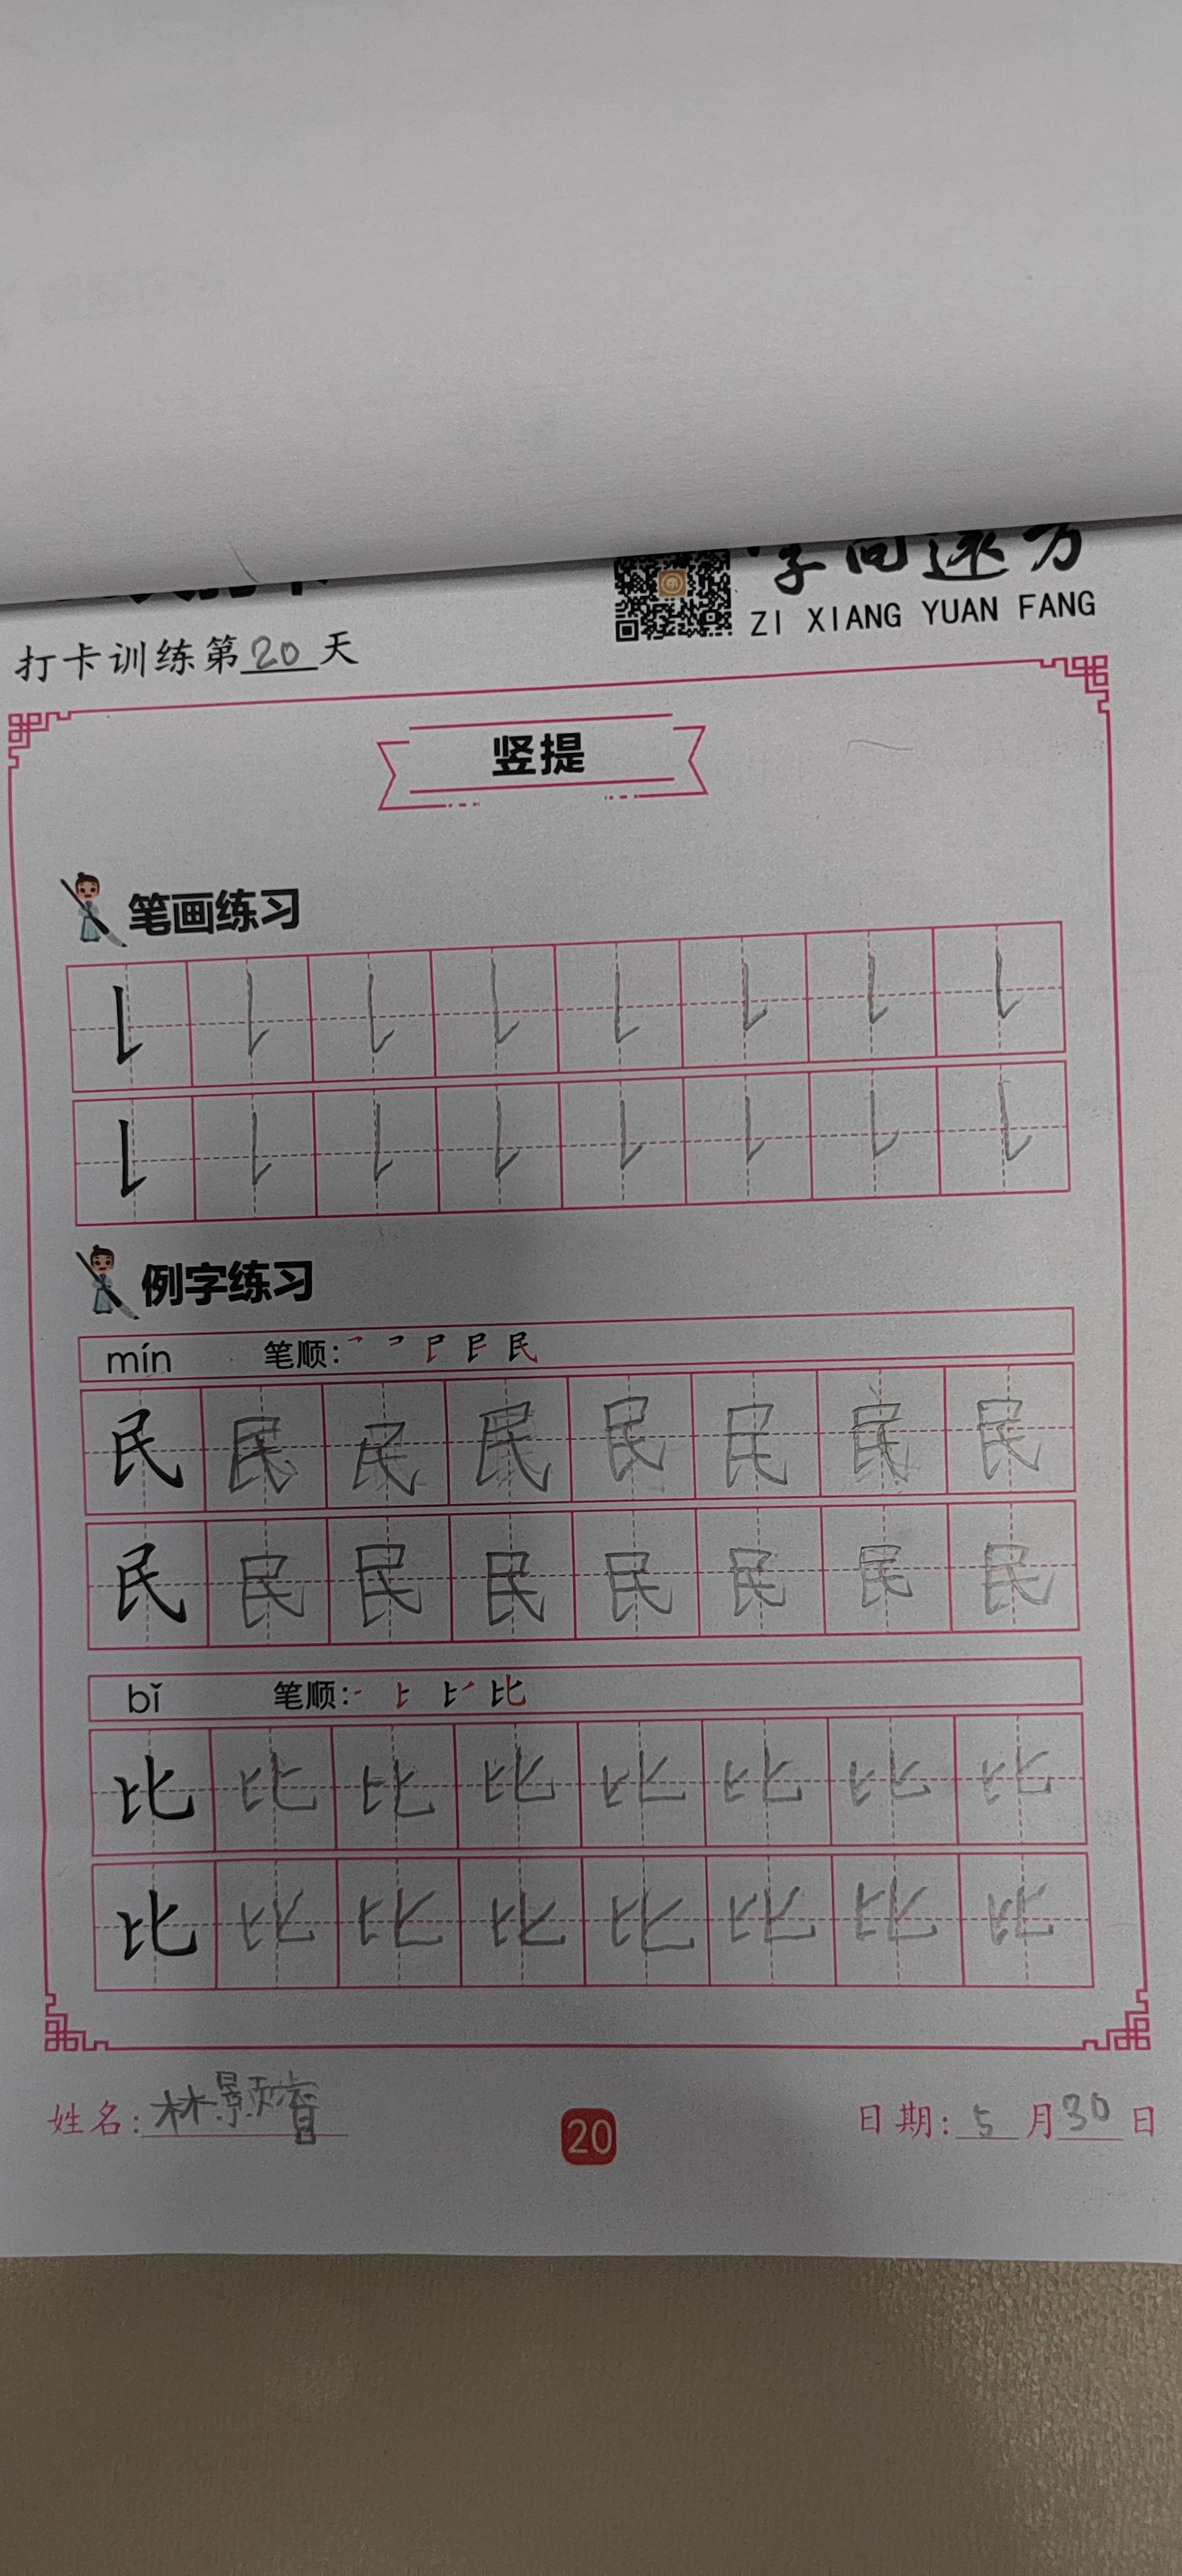 字向远方
ZI XIANG YUAN FANG
打卡训练第20天
竖提
笔画练习
例字练习
mín 笔顺: 民
民民民民民民民民
民民民民民民民民
bǐ 笔顺: 比
比比比比比比比比
比比比比比比比比
姓名:林颢睿
20
日期:5月30日